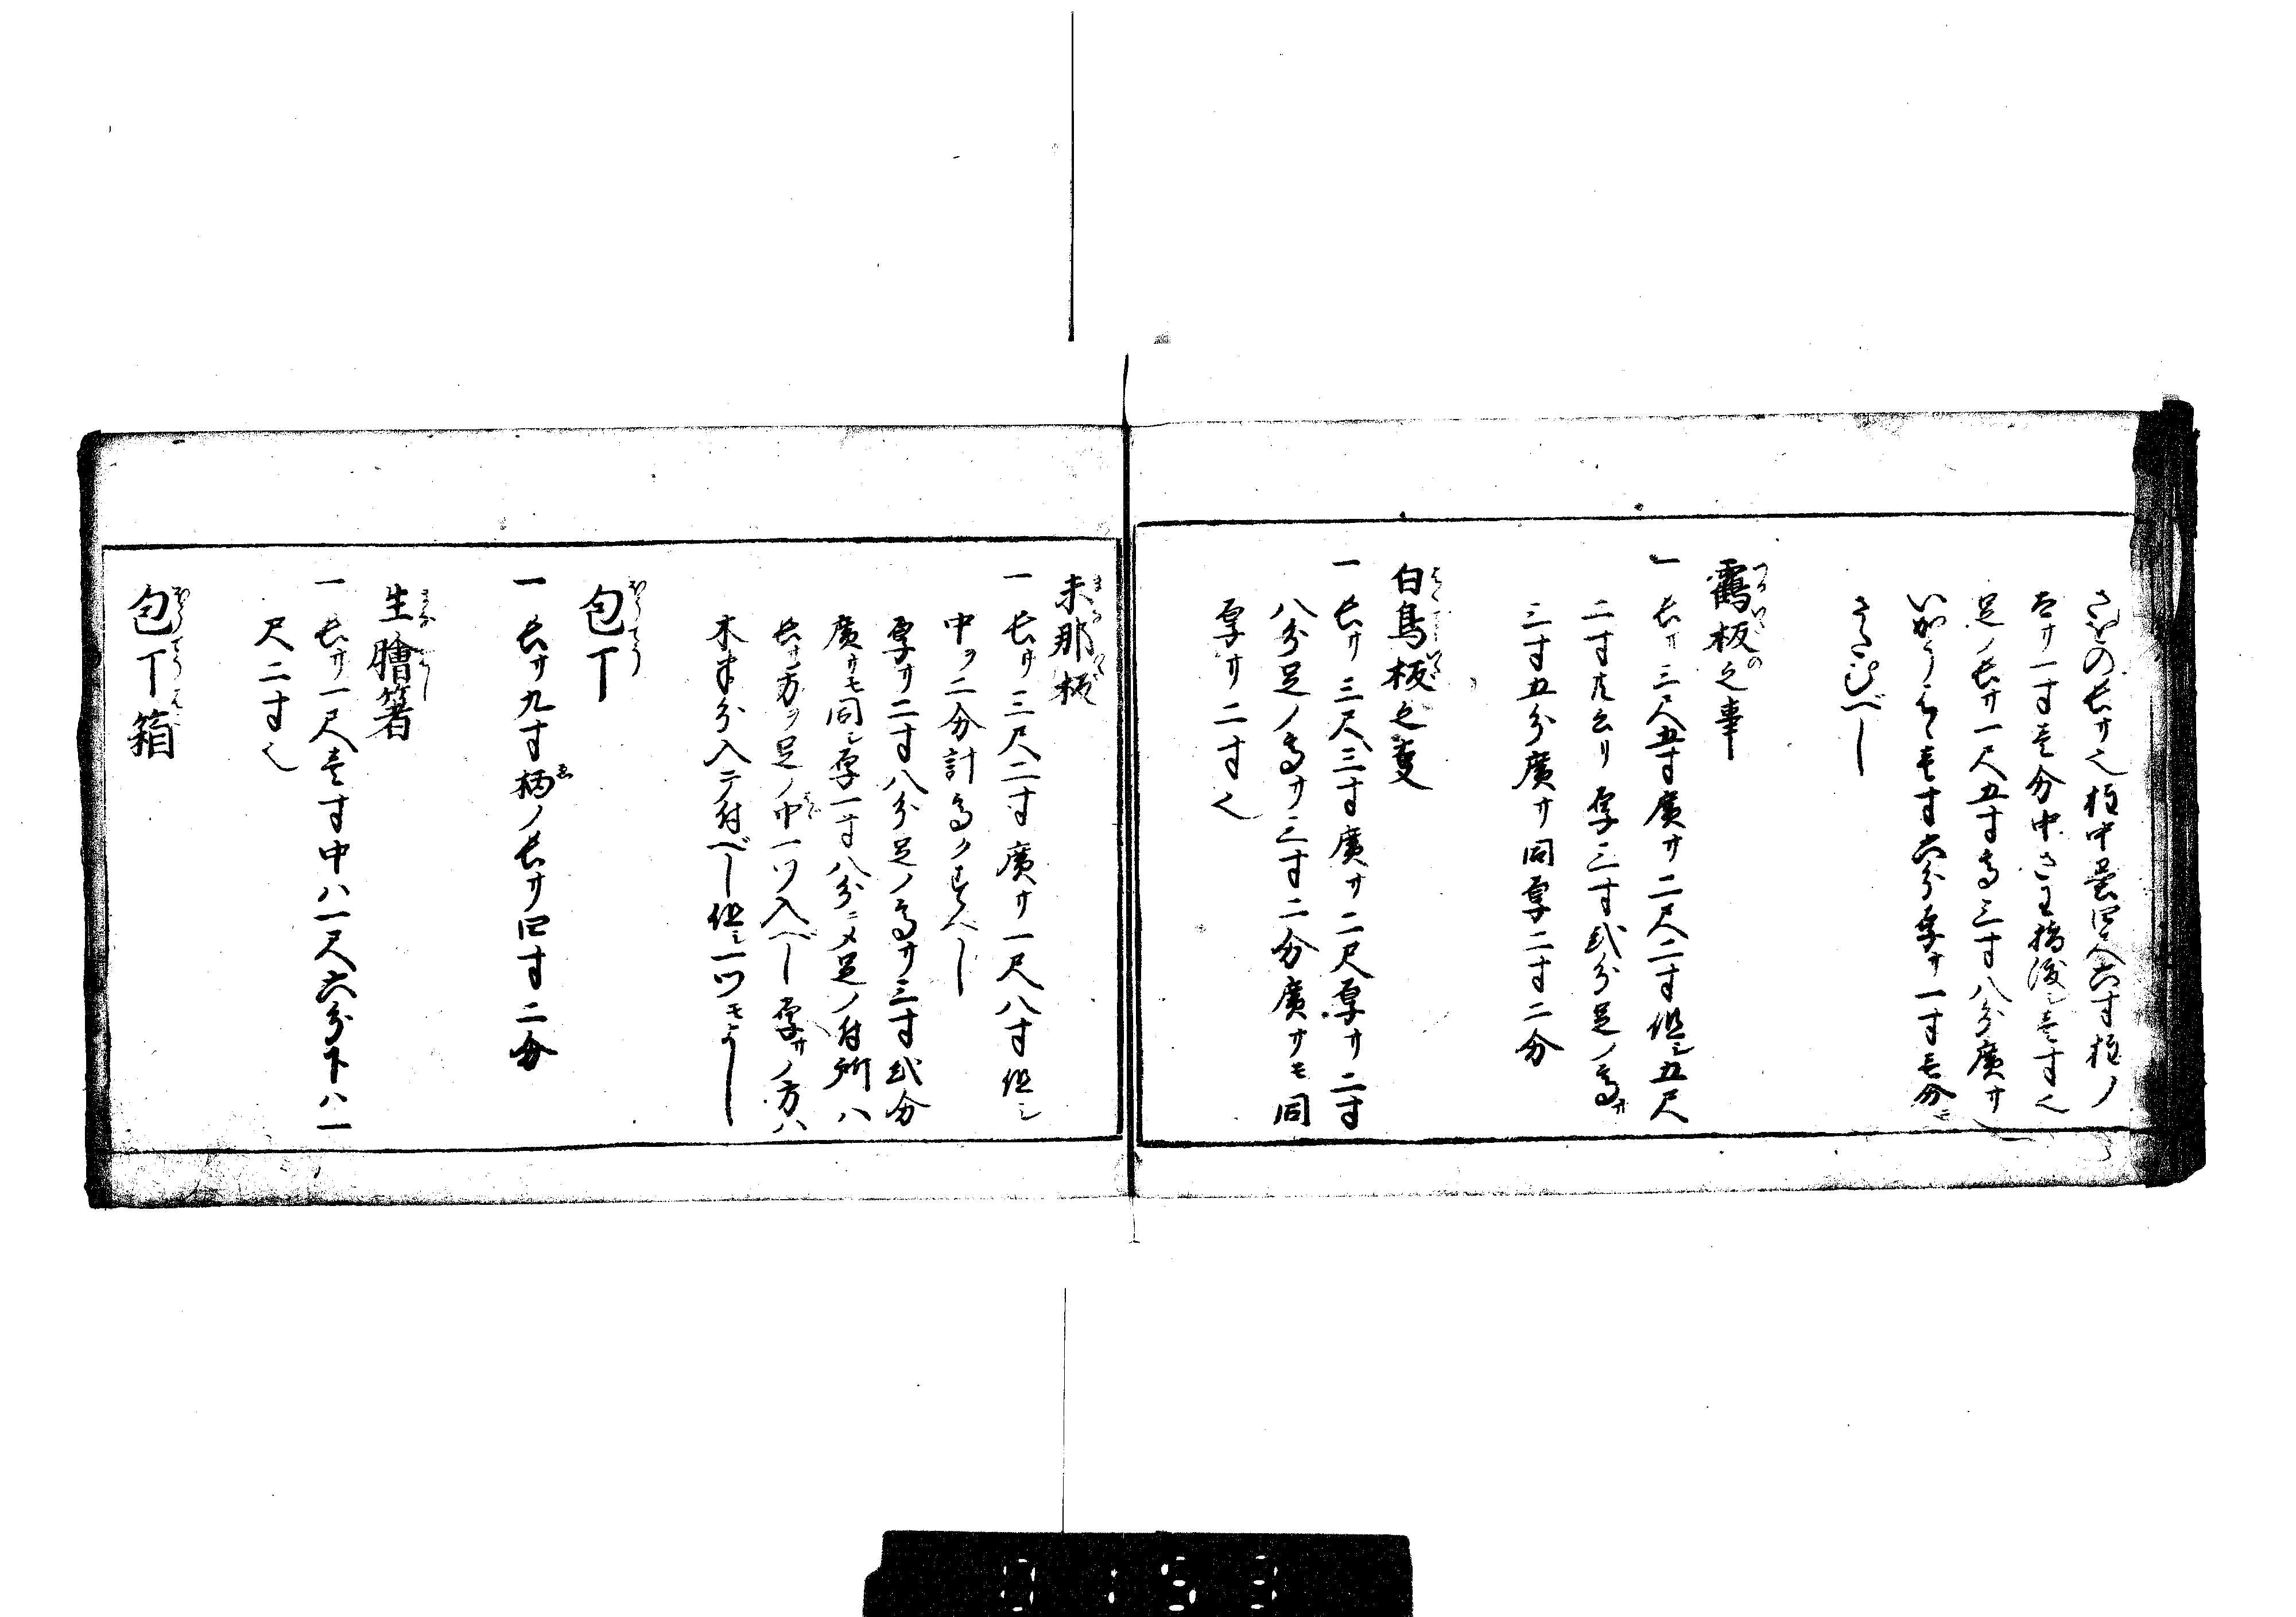 さをの長サ也柱中墨四尺六寸柱ノ
太サ一寸壱分中さ
足ノ長サ一尺五寸高三寸八分廣サ
寸六分厚サ一寸壱分ニ
さたむべし
鶴板之事
一長サ三尺五寸廣サ二尺二寸但シ五尺
二寸共云リ厚三寸弐分足ノ高サ
三寸五分廣サ同厚二寸二分
白鳥板之事
一長サ三尺三寸廣サ二尺厚サ二寸
八分足ノ高サ三寸二分廣サモ同
厚サ二寸也
末那板
一長サ三尺二寸廣サ一尺八寸但シ
中ヲ二分計高クすべし
厚サ二寸八分足ノ高サ三寸弐分
廣サモ同シ厚一寸八分ニメ足ノ付所ハ
長サノ方ヲ足ノ中一ツ入べし厚サノ方ハ
木半分入テ付べし但シ一ツモよし
包丁
一長サ九寸柄ノ長サ四寸二分
生膾箸
一長サ一尺壱寸中ハ一尺六分下ハ一
尺二寸也
包丁箱
0153